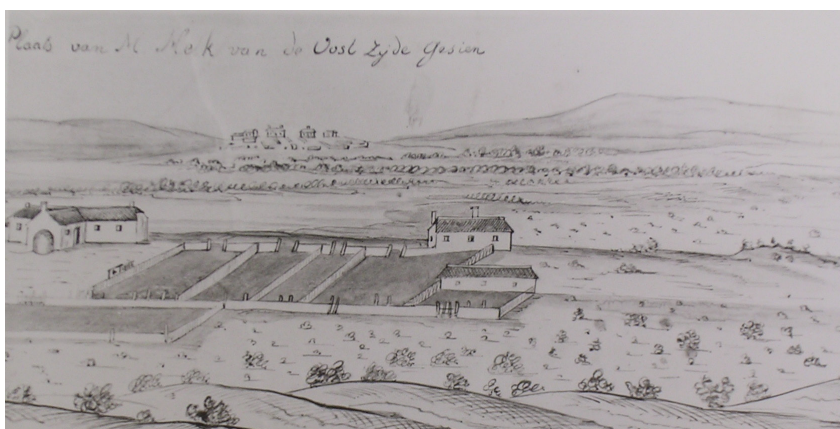 Plaats van M Mok van de Oost Zyde Gesien